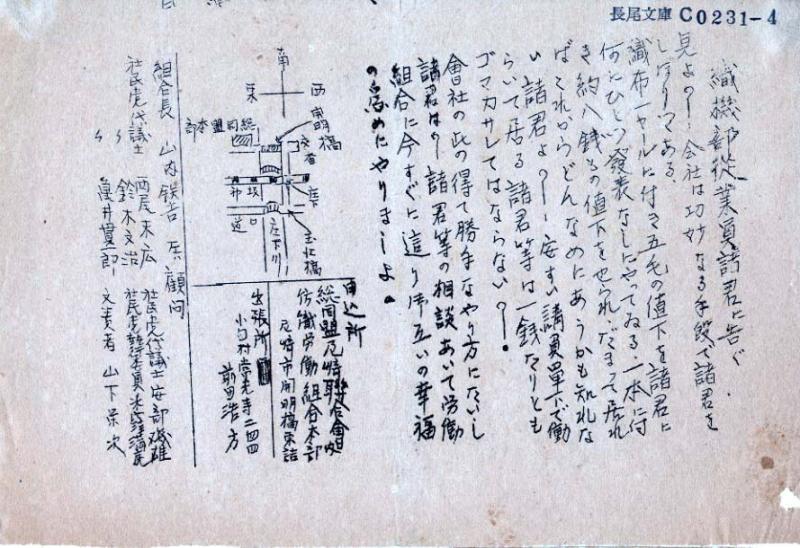 長尾文庫 C0231-4
織機部從業員諸君に告ぐ.
見よ！会社は功妙なる手段で諸君を
しぼりつゝある、
織布一ヤールに付き五毛の値下を諸君に
何にひとつ發表なしにやってゐる、一本に付
き約八銭もの値下をせられだまって居れ
ばこれからどんなめにあうかも知れな
い諸君よ！安すい請負單下で働
らいて居る諸君等は一銭たりとも
ゴマカサレてはならない！
會社の此の得て勝手なやり方にたいし
諸君は！諸君等の相談あいて労働
組合に今すぐに這り御互いの幸福
の為めにやりましよ。
南
西
東
総同盟本部
開明橋
交番
庄下
阪神
玉江橋
道口
庄下川
申込所
総同盟尼崎聯合會内
紡織労働組合本部
尼崎市開明橋東詰
出張所
小田村常光寺二四四
前田浩方
組合長 山内鉄吉 顧問
社民党代議士 西尾末広 社民党代議士 安部磯雄
〃 〃 鈴木文治 社民党執行委員 米窪満亮
亀井貫一郎 文責者 山下栄次